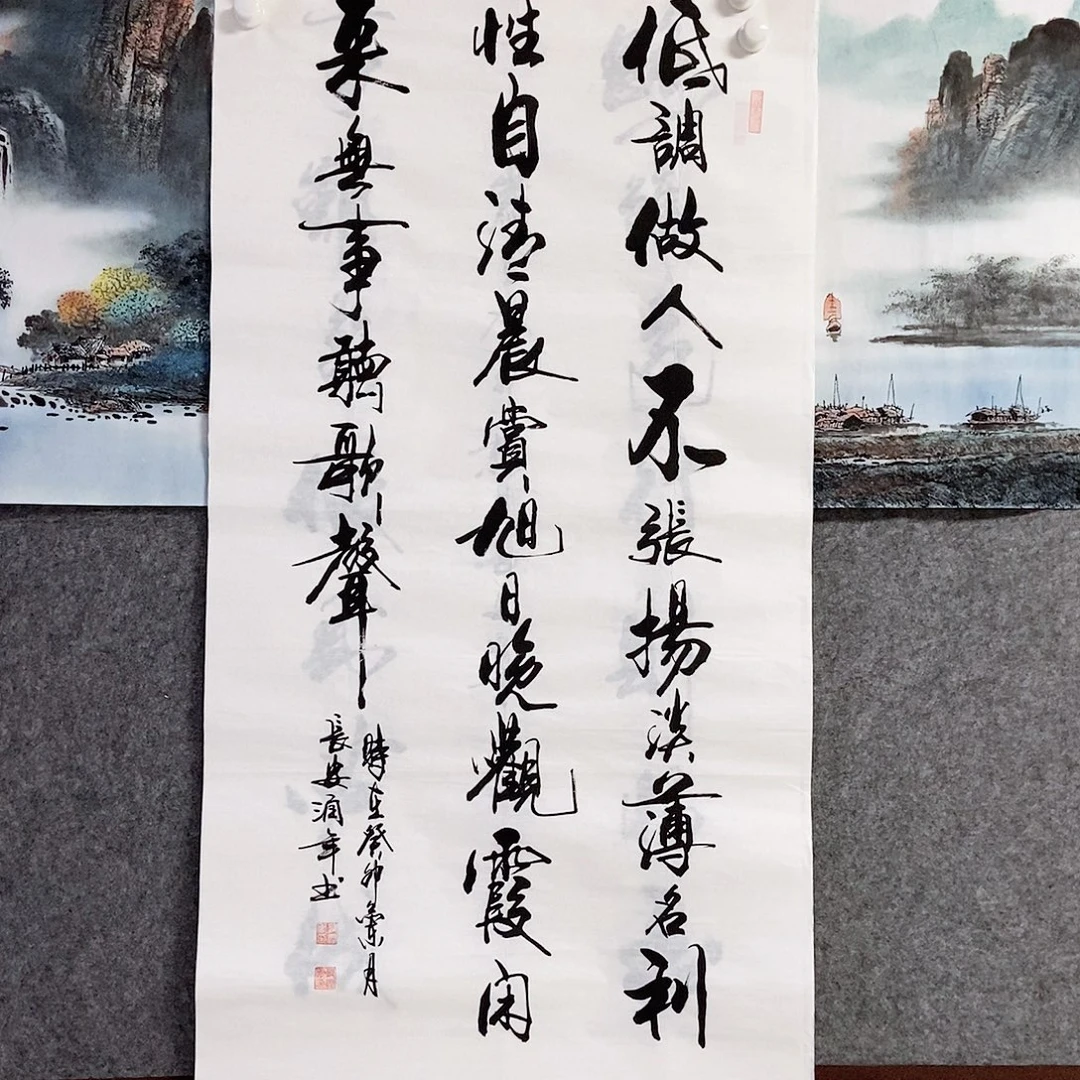 低調做人不張揚淡薄名利
性自清晨賞旭日晚觀霞闲
來無事聽歌聲
時在癸卯蘭月
長安潤年书